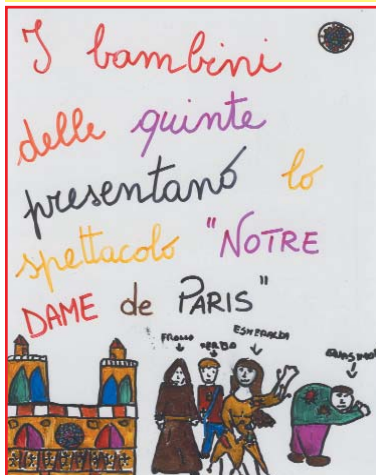 I bambini
delle quinte
presentano lo
spettacolo "NOTRE
DAME de PARIS"
FROLLO
FEBO
ESMERALDA